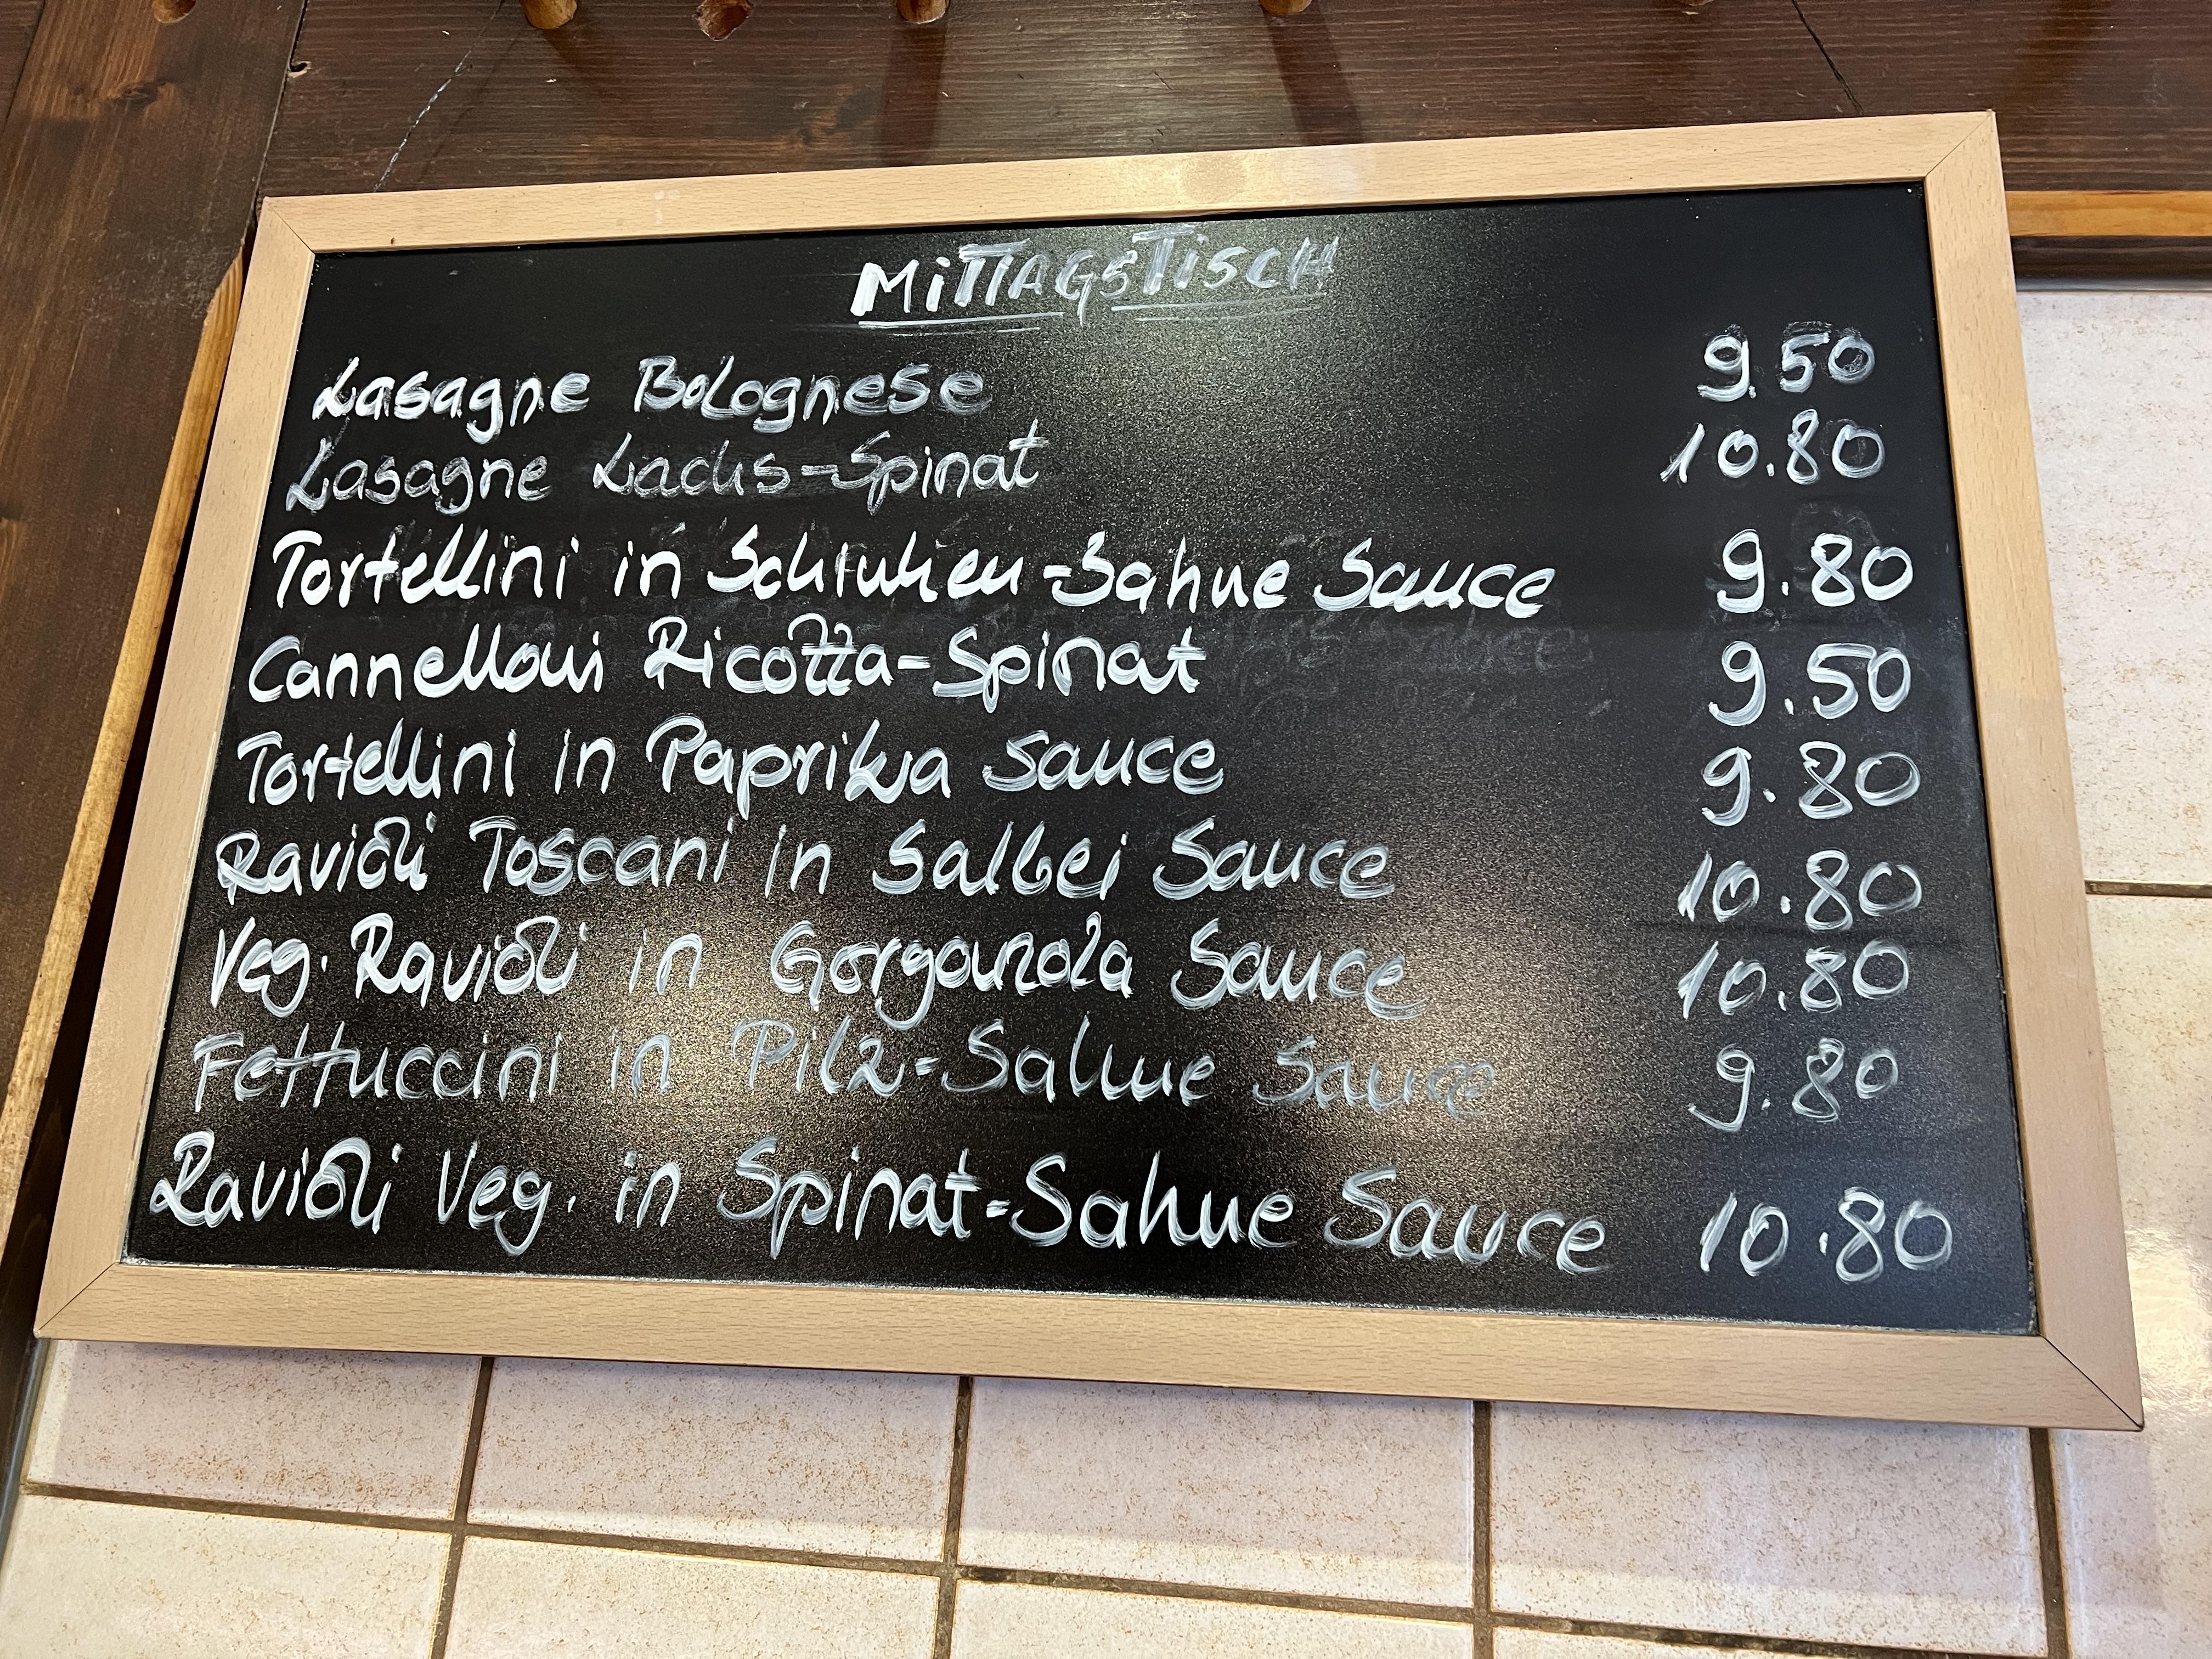 MITTAGSTISCH
Lasagne Bolognese 9.50
Lasagne Lachs-Spinat 10.80
Tortellini in Schinken-Sahne Sauce 9.80
Cannelloni Ricotta-Spinat 9.50
Tortellini in Paprika Sauce 9.80
Ravioli Toscani in Salbei Sauce 10.80
Veg. Ravioli in Gorgonzola Sauce 10.80
Fettuccini in Pilz-Sahne Sauce 9.80
Ravioli Veg. in Spinat-Sahne Sauce 10.80